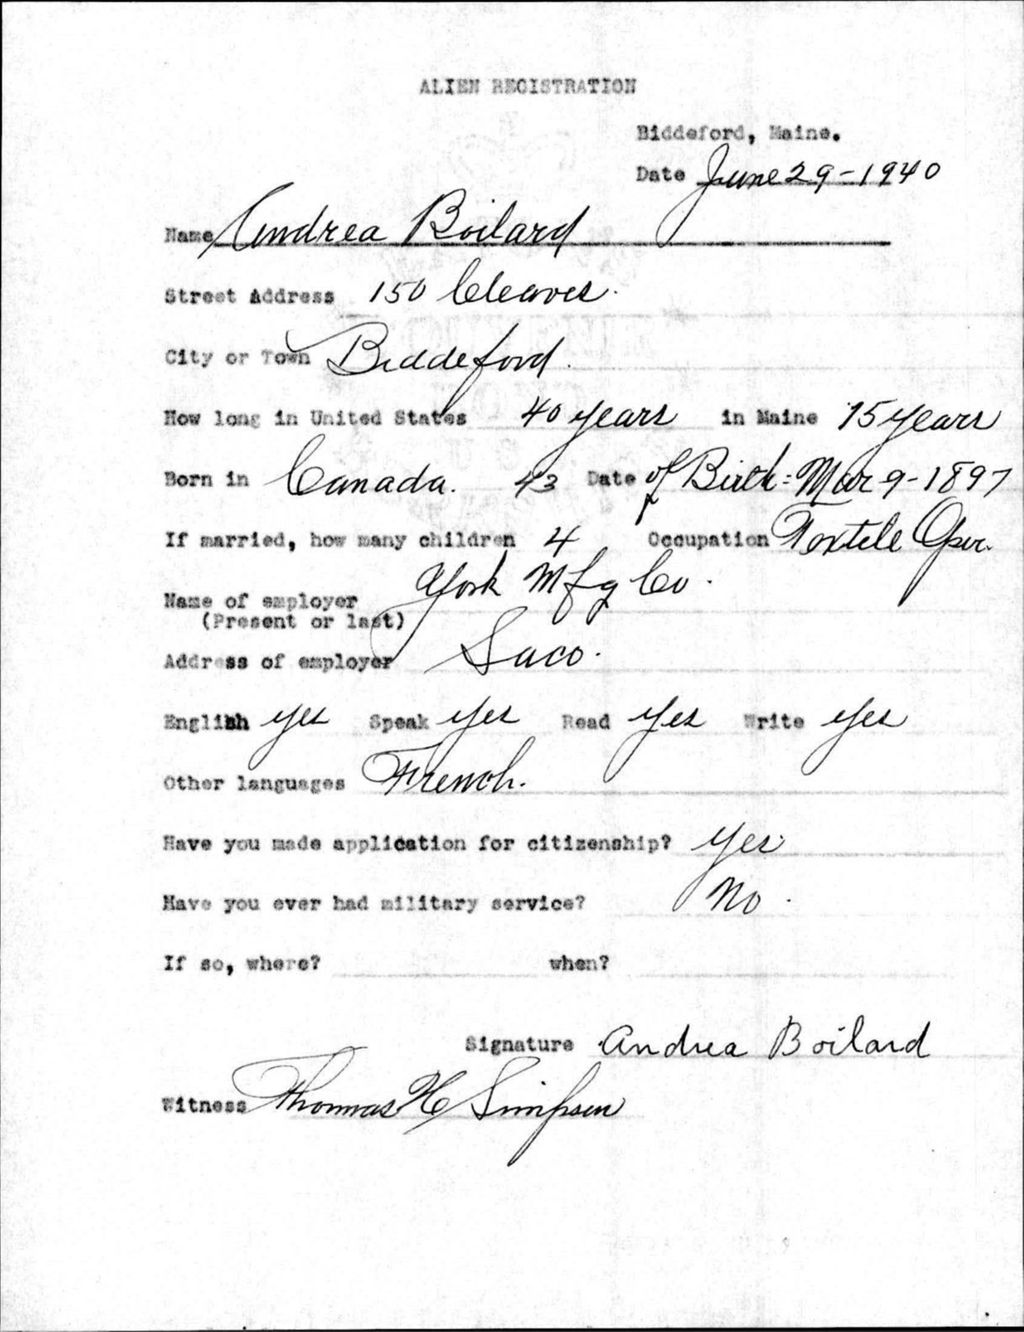 ALIEN REGISTRATION
Biddeford, Maine.
Date June 29-1940
Name Andrea Boilard
Street Address 150 Cleaves.
City or Town Biddeford.
How long in United States 40 years in Maine 15 years
Born in Canada. 43 Date of Birth: Mar 9-1897
If married, how many children 4 Occupation Textile Oper.
Name of employer York Mfg Co.
(Present or last)
Address of employer Saco.
English yes Speak yes Read yes Write yes
Other languages French.
Have you made application for citizenship? yes
Have you ever had military service? No.
If so, where? when?
Signature Andrea Boilard
Witness Thomas H Simpson